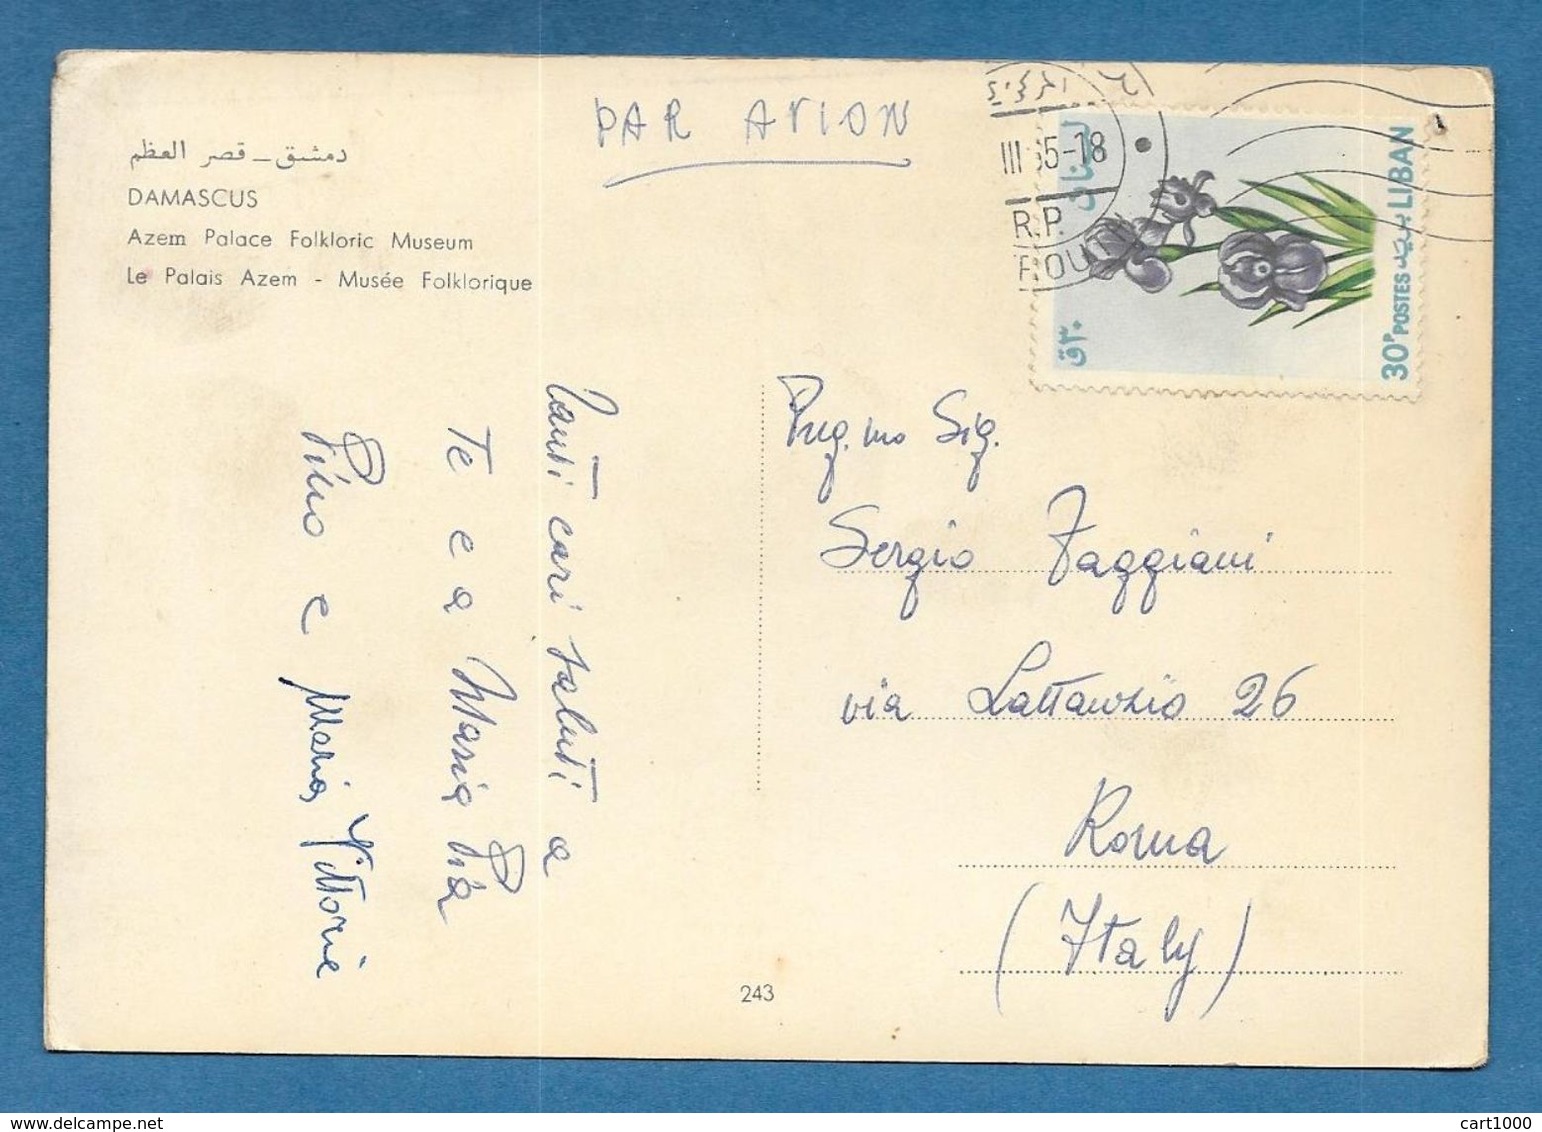 دمشق - قصر العظم
DAMASCUS
Azem Palace Folkloric Museum
Le Palais Azem - Musée Folklorique
PAR AVION
III 65-18
R.P.
لبنان
LIBAN
بريد
POSTES
30P
٣٠ق
Tanti cari saluti a
Te e a Maria Pia
Pino e Maria Vittoria
Preg.mo Sig.
Sergio Faggiani
via Lattanzio 26
Roma
(Italy)
243
cart1000